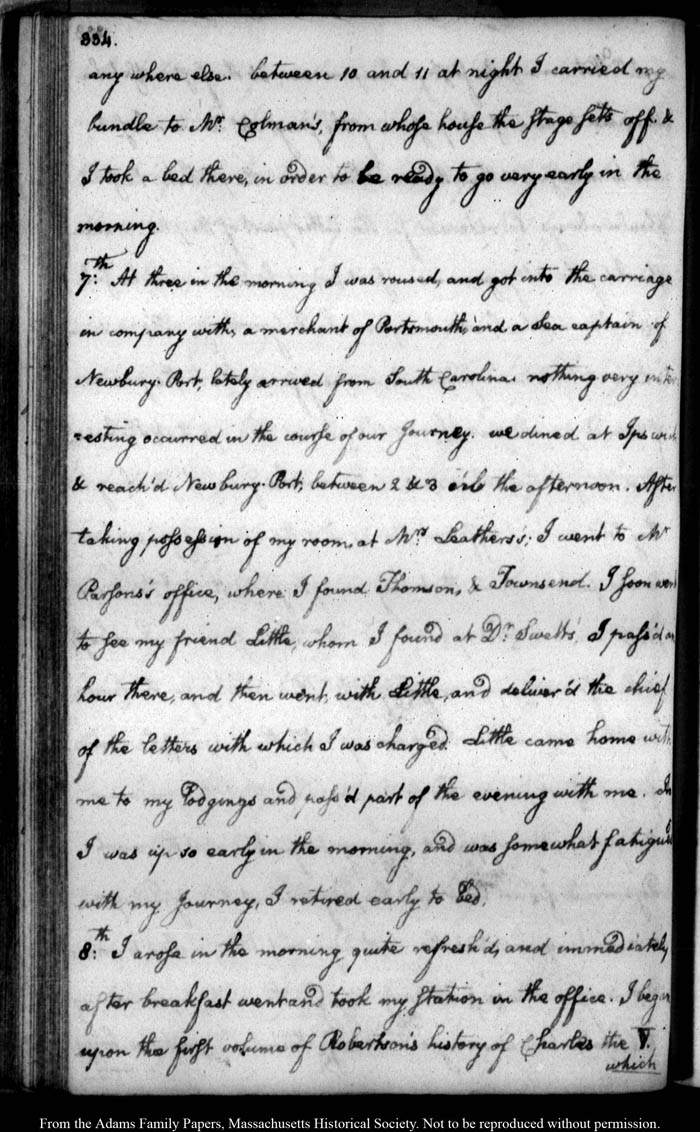 334.
any where else. between 10 and 11 at night I carried my
bundle to Mr. Colman's, from whose house the stage sets off. &
I took a bed there, in order to be ready to go very early in the
morning.
7.th At three in the morning I was roused, and got into the carriage
in company with, a merchant of Portsmouth, and a Sea captain of
Newbury-Port, lately arrived from South Carolina. nothing very inter
=esting occurred in the course of our Journey. we dined at Ipswich
& reach'd Newbury-Port, between 2 & 3 in the afternoon. After
taking possession of my room, at Mrs. Leathers's; I went to Mr
Parsons's office, where I found Thomson, & Townsend. I soon went
to see my friend Little, whom I found at Dr. Swett's, I pass'd an
hour there, and then went, with Little, and deliver'd the chief
of the letters with which I was charged. Little came home with
me to my lodgings and pass'd part of the evening with me. As
I was up so early in the morning, and was somewhat fatigued
with my Journey, I retired early to bed.
8.th I arose in the morning quite refresh'd, and immediately
after breakfast went and took my station in the office. I began
upon the first volume of Robertson's history of Charles the V.
which
From the Adams Family Papers, Massachusetts Historical Society. Not to be reproduced without permission.